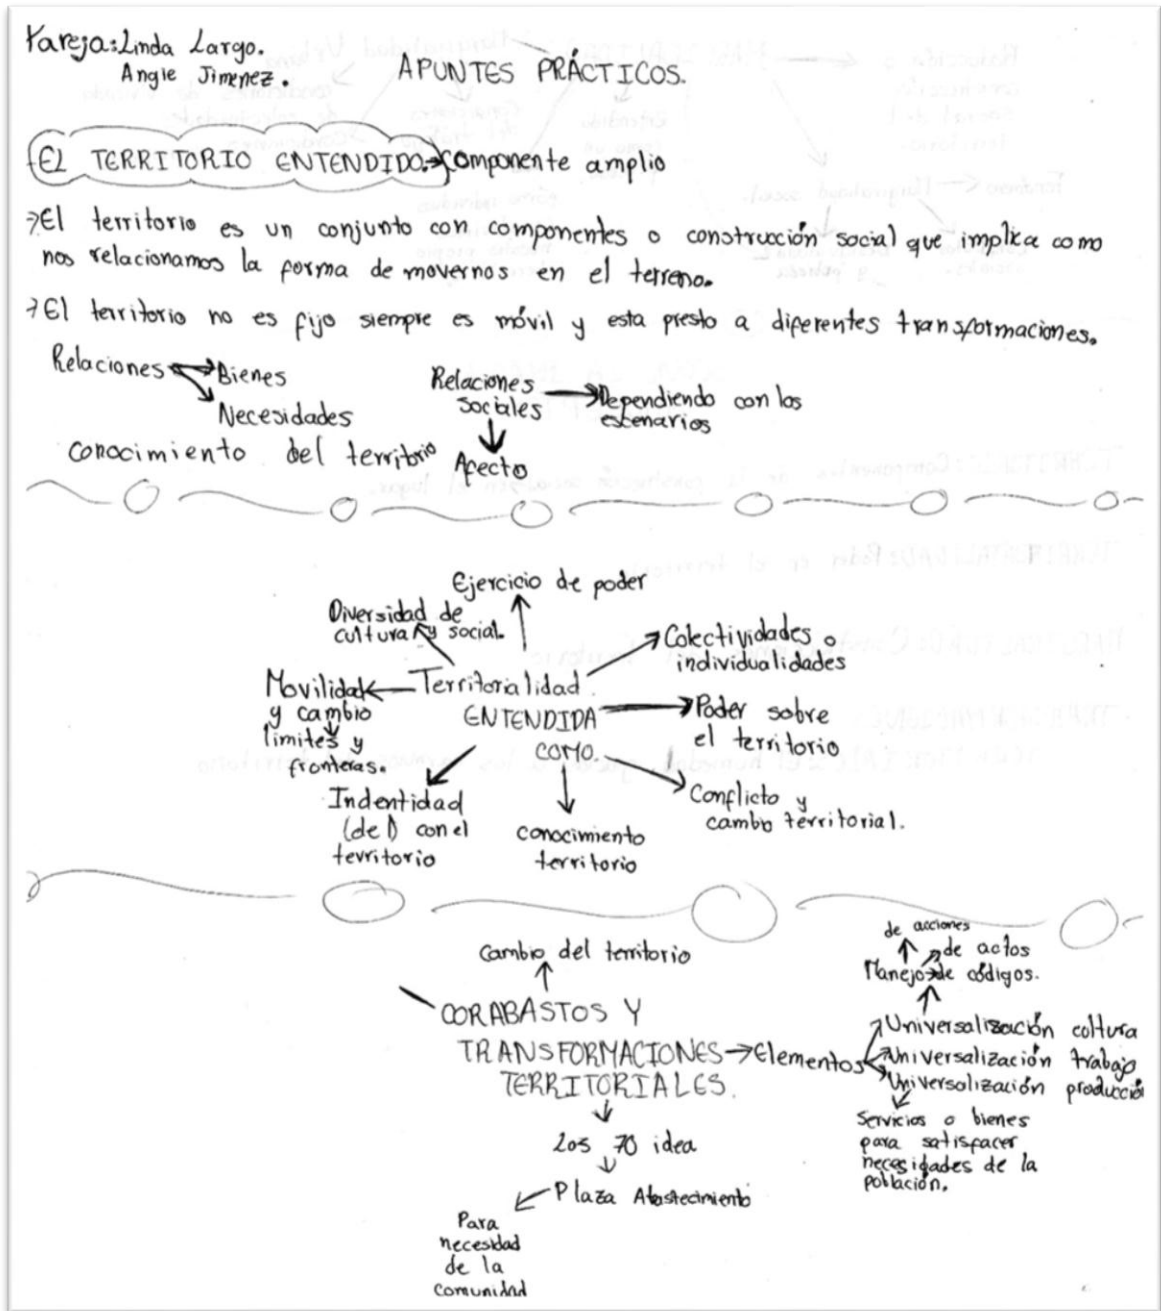 Pareja: Linda Largo.
Angie Jimenez.
APUNTES PRÁCTICOS.
EL TERRITORIO ENTENDIDO. Componente amplio
El territorio es un conjunto con componentes o construcción social que implica como
nos relacionamos la forma de movernos en el terreno.
El territorio no es fijo siempre es móvil y esta presto a diferentes transformaciones.
Relaciones
Bienes
Necesidades
Relaciones
sociales
Dependiendo con los
escenarios
conocimiento del territorio
Afecto
Ejercicio de poder
Diversidad de
cultura y social.
Colectividades o
individualidades
Movilidad
y cambio
limites y
fronteras.
Territorialidad
ENTENDIDA
COMO.
Poder sobre
el territorio
Indentidad
(del) con el
territorio
conocimiento
territorio
Conflicto y
cambio territorial.
Cambio del territorio
CORABASTOS Y
TRANSFORMACIONES
TERRITORIALES.
Elementos
de acciones
de actos
Manejo de códigos.
Universalización cultura
Universalización trabajo
Universalización producción
Servicios o bienes
para satisfacer
necesidades de la
población.
Los 70 idea
Plaza Abastecimiento
Para
necesidad
de la
comunidad